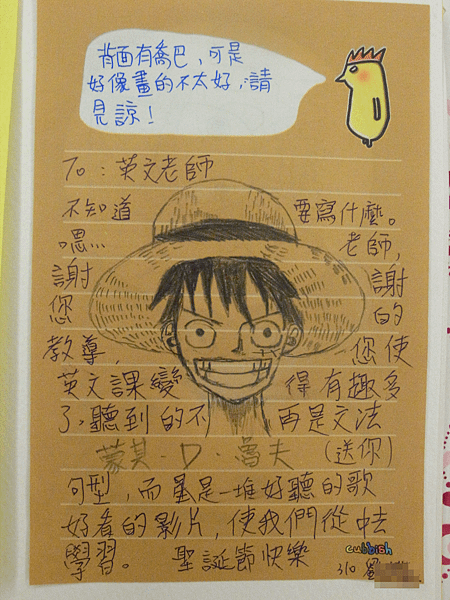 背面有喬巴,可是
好像畫的不太好,請
見諒!
To:英文老師
不知道 要寫什麼。
嗯… 老師,
謝 謝
您 的
教導, 您使
英文課變 得有趣多
了,聽到的不 再是文法
蒙其·D·魯夫 (送你)
句型,而是一堆好聽的歌
好看的影片,使我們從中去
學習。 聖誕節快樂
cubbish
310